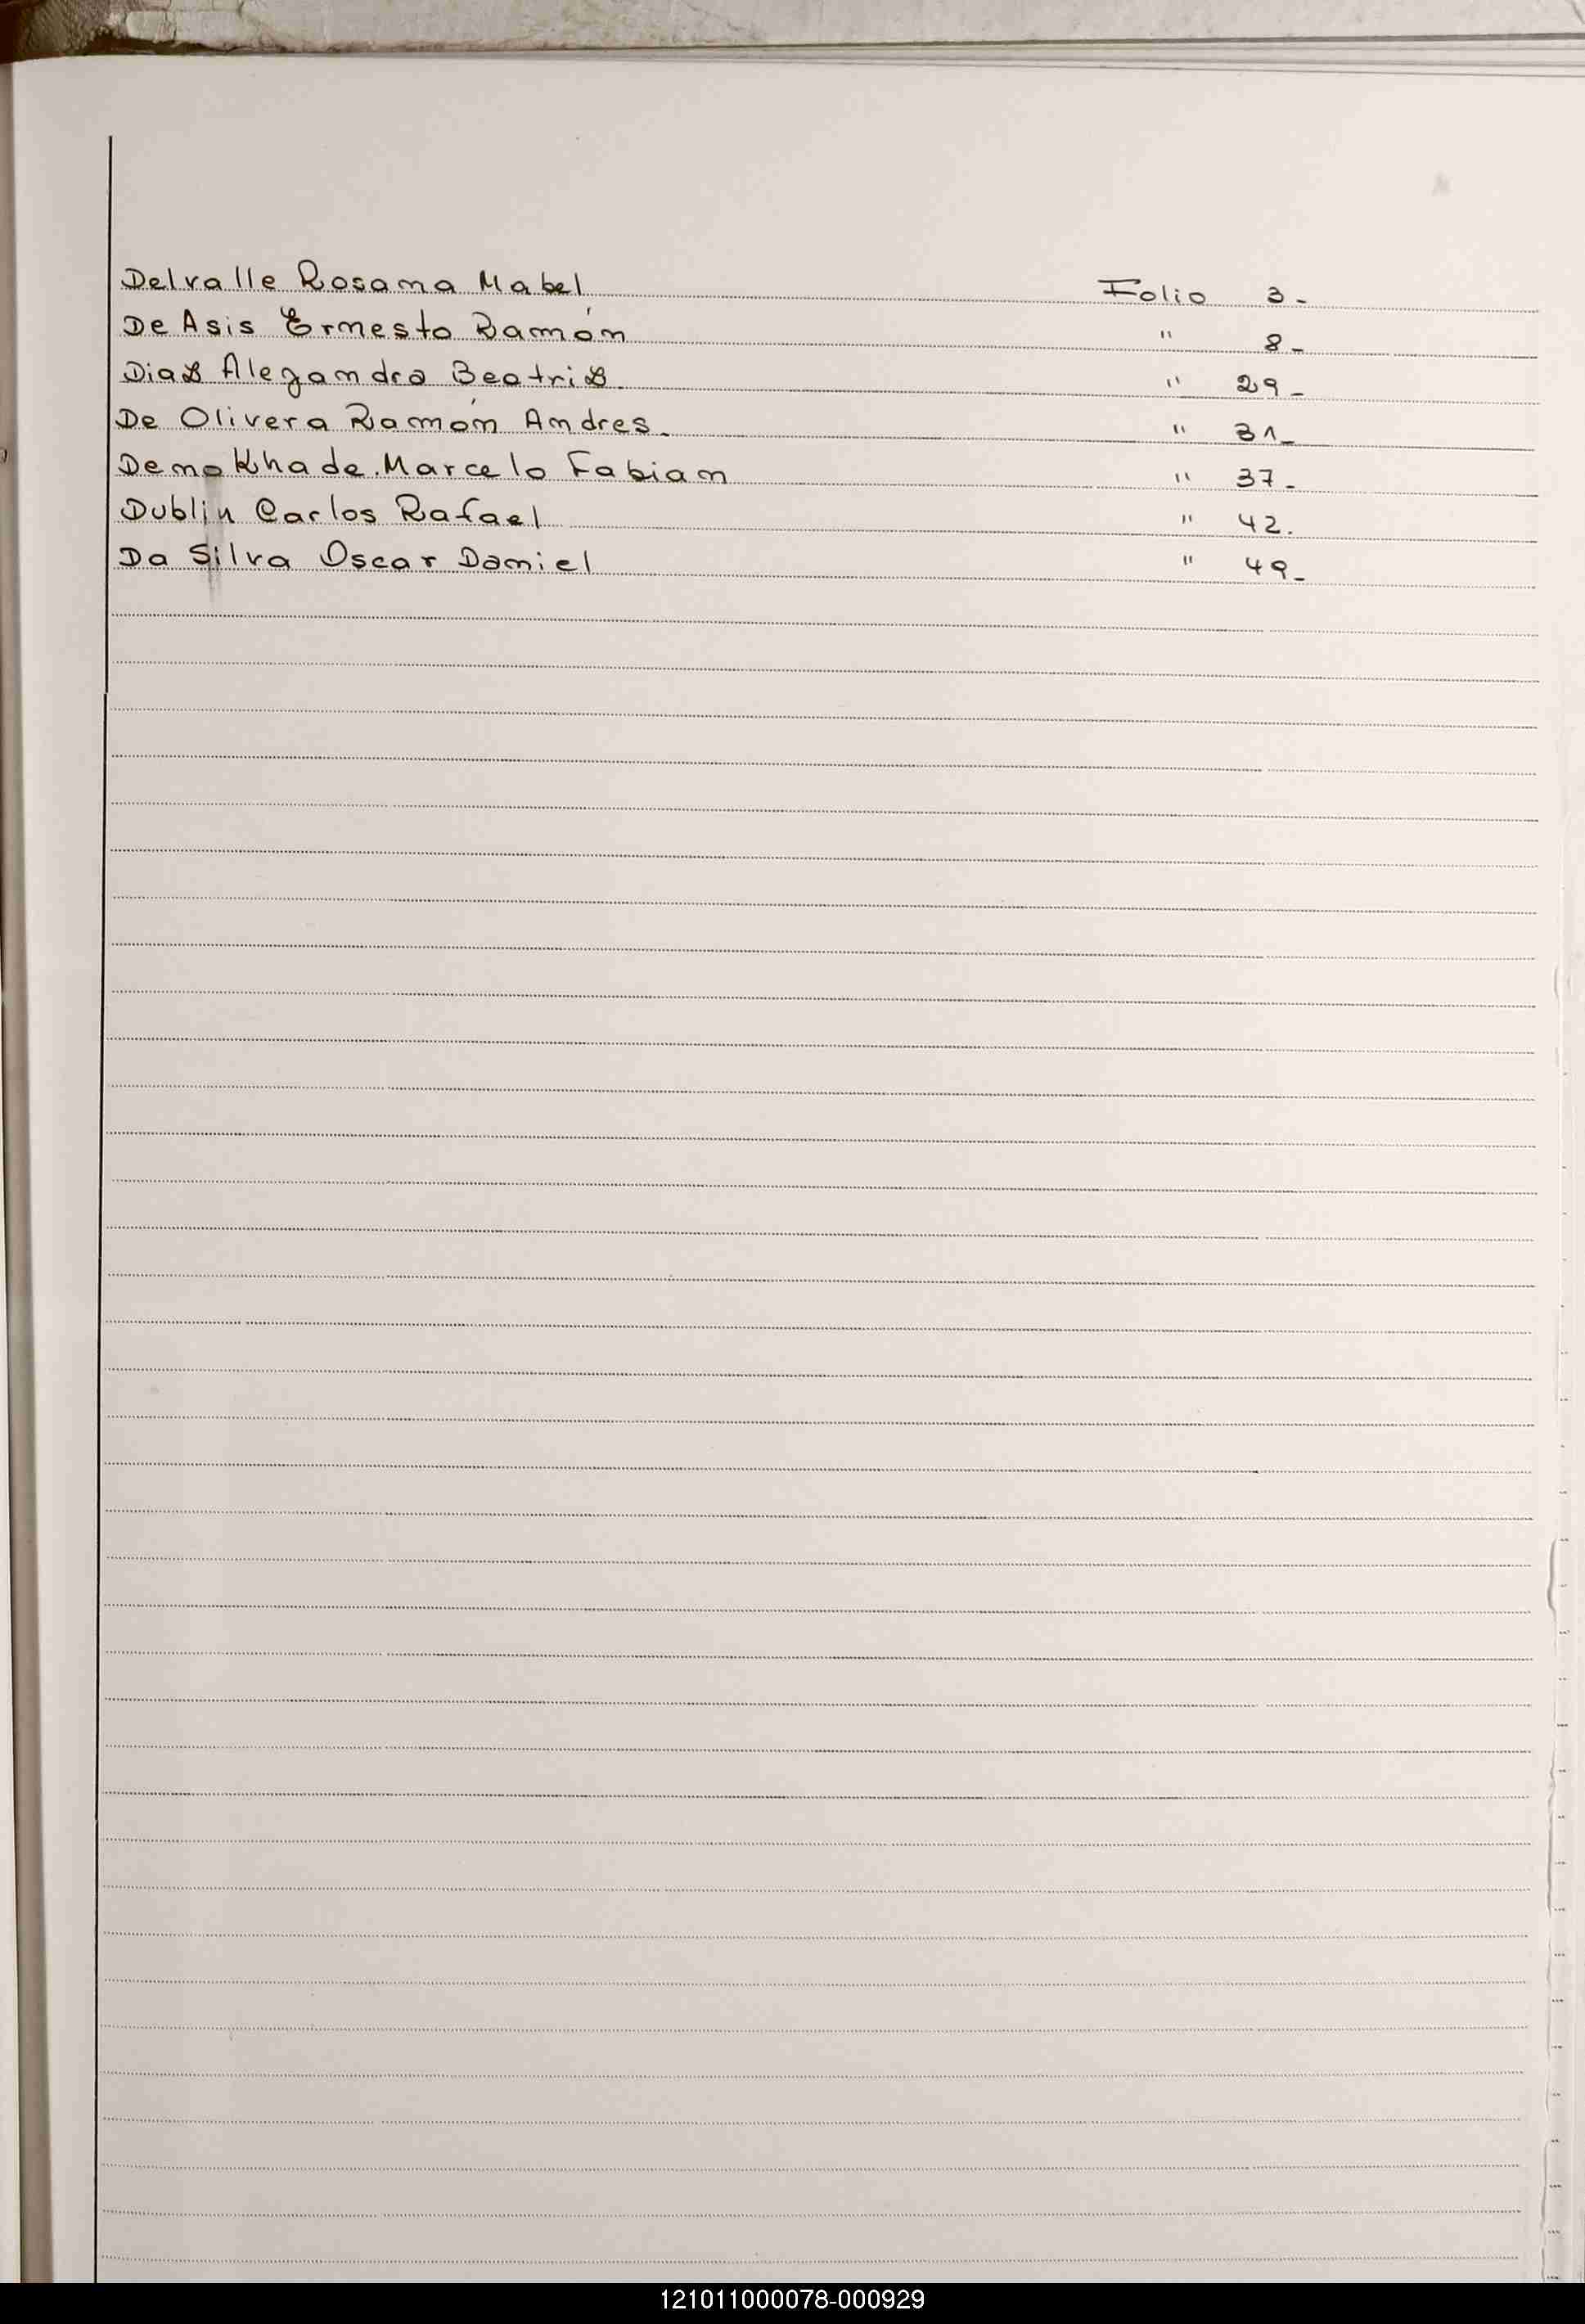 Delvalle Rosana Mabel Folio 3-
De Asis Ernesto Ramón " 8-
Diaz Alejandra Beatriz " 29-
De Olivera Ramón Andres. " 31-
Demokhade Marcelo Fabian " 37-
Dublin Carlos Rafael " 42.
Da Silva Oscar Daniel " 49-
121011000078-000929